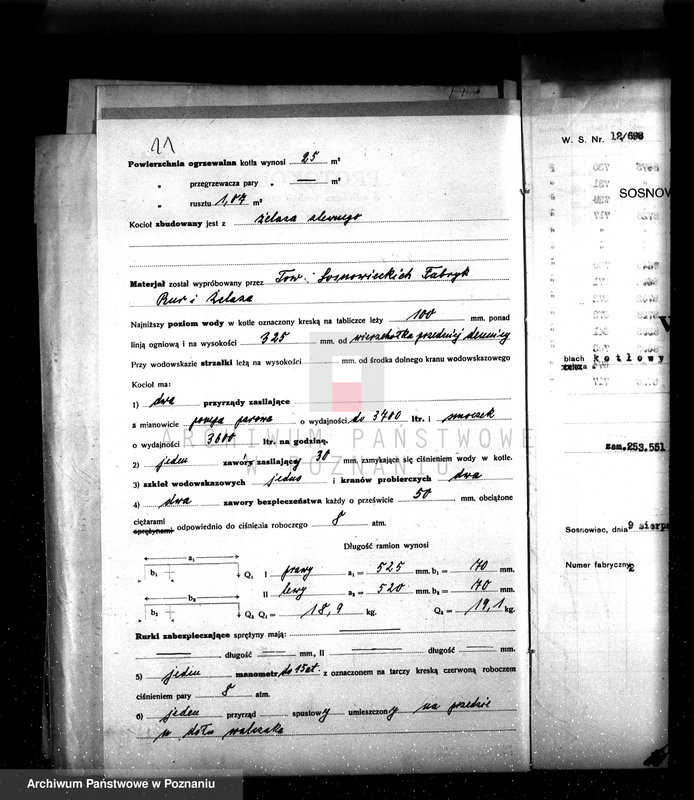 21
Powierzchnia ogrzewalna kotła wynosi 25 m²
„ przegrzewacza pary „ — m²
„ rusztu 1,07 m²
Kocioł zbudowany jest z żelaza zlewnego
Materjał został wypróbowany przez Tow. Sosnowieckich Fabryk
Rur i Żelaza
Najniższy poziom wody w kotle oznaczony kreską na tabliczce leży 100 mm. ponad
linją ogniową i na wysokości 325 mm. od wierzchołka przedniej dennicy
Przy wodowskazie strzałki leżą na wysokości mm. od środka dolnego kranu wodowskazowego
Kocioł ma:
1) dwa przyrządy zasilające
a mianowicie pompa parowa o wydajności do 3700 ltr. i smoczek
o wydajności 3600 ltr. na godzinę.
2) jeden zawóry zasilający 30 mm. zamykające się ciśnieniem wody w kotle.
3) szkieł wodowskazowych jedno i kranów probierczych dwa
4) dwa zawory bezpieczeństwa każdy o prześwicie 50 mm. obciążone
ciężarami
sprężynami odpowiednio do ciśnienia roboczego 8 atm.
Długość ramion wynosi
a₁
b₁
Q₁ I prawy a₁ = 525 mm. b₁ = 70 mm.
II lewy a₂ = 520 mm. b₂ = 70 mm.
Q₂ Q₁ = 18,9 kg. Q₂ = 19,1 kg.
Rurki zabezpieczające sprężyny mają: —
— długość — mm., II — długość — mm.
5) jeden manometr do 15 at. z oznaczonem na tarczy kreską czerwoną roboczem
ciśnieniem pary 8 atm.
6) jeden przyrząd spustowy umieszczony na przedzie
w dole walczaka
W. S. Nr. 12/698
SOSNOW
blach kotłowy
zam. 253.551
Sosnowiec, dnia 9 sierp
Numer fabryczny 2
ARCHIWUM PAŃSTWOWE
W POZNANIU
Archiwum Państwowe w Poznaniu